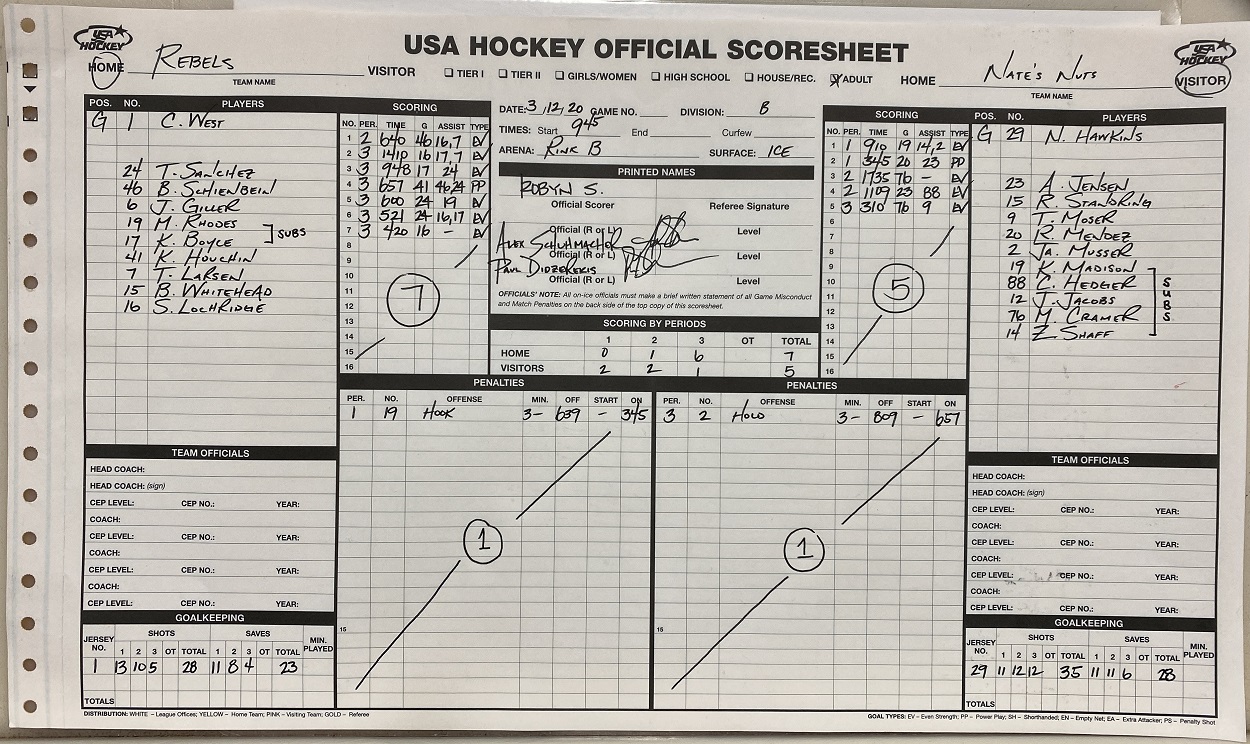 USA HOCKEY OFFICIAL SCORESHEET
USA HOCKEY
USA HOCKEY
HOME REBELS VISITOR
TEAM NAME
☐ TIER I ☐ TIER II ☐ GIRLS/WOMEN ☐ HIGH SCHOOL ☐ HOUSE/REC. ☒ ADULT
HOME NATE'S NUTS VISITOR
TEAM NAME
POS. NO. PLAYERS
G 1 C. WEST
24 T. SANCHEZ
46 B. SCHIENBEIN
6 J. GILLER
19 M. RHODES
17 K. BOYLE
SUBS
41 K. HOUCHIN
7 T. LARSEN
15 B. WHITEHEAD
16 S. LOCHRIDGE
SCORING
NO. PER. TIME G ASSIST TYPE
1 2 640 46 16,7 EV
2 3 1410 16 17,7 EV
3 3 948 17 24 EV
4 3 657 41 46 24 PP
5 3 600 24 19 EV
6 3 521 24 16,17 EV
7 3 420 16 - EV
8
9
10
11
12
13
14
15
16
7
DATE: 3/12/20 GAME NO. DIVISION: B
TIMES: Start 945 End Curfew
ARENA: RINK B SURFACE: ICE
PRINTED NAMES
ROBYN S.
Official Scorer Referee Signature
Official (R or L) Level
ALEX SCHUHMACHER
Official (R or L) Level
PAUL DIDZEREKIS
Official (R or L) Level
OFFICIALS' NOTE: All on-ice officials must make a brief written statement of all Game Misconduct
and Match Penalties on the back side of the top copy of this scoresheet.
SCORING BY PERIODS
1 2 3 OT TOTAL
HOME 0 1 6 7
VISITORS 2 2 1 5
SCORING
NO. PER. TIME G ASSIST TYPE
1 1 910 19 14,2 EV
2 1 345 20 23 PP
3 2 1735 76 - EV
4 2 1109 23 88 EV
5 3 310 76 9 EV
6
7
8
9
10
11
12
13
14
15
16
5
POS. NO. PLAYERS
G 29 N. HAWKINS
23 A. JENSEN
15 R. STANDRING
9 T. MOSER
20 R. MENDEZ
2 JA. MUSSER
19 K. MADISON
88 C. HEDGER
12 J. JACOBS
76 M. CRAMER
14 Z. SHAFF
SUBS
PENALTIES
PER. NO. OFFENSE MIN. OFF START ON
1 19 HOOK 3- 639 - 345
15
1
PENALTIES
PER. NO. OFFENSE MIN. OFF START ON
3 2 HOLD 3- 809 - 657
15
1
TEAM OFFICIALS
HEAD COACH:
HEAD COACH: (sign)
CEP LEVEL: CEP NO.: YEAR:
COACH:
CEP LEVEL: CEP NO.: YEAR:
COACH:
CEP LEVEL: CEP NO.: YEAR:
COACH:
CEP LEVEL: CEP NO.: YEAR:
GOALKEEPING
JERSEY NO. SHOTS SAVES MIN. PLAYED
1 2 3 OT TOTAL 1 2 3 OT TOTAL
1 13 10 5 28 11 8 4 23
TOTALS
TEAM OFFICIALS
HEAD COACH:
HEAD COACH: (sign)
CEP LEVEL: CEP NO.: YEAR:
COACH:
CEP LEVEL: CEP NO.: YEAR:
COACH:
CEP LEVEL: CEP NO.: YEAR:
COACH:
CEP LEVEL: CEP NO.: YEAR:
GOALKEEPING
JERSEY NO. SHOTS SAVES MIN. PLAYED
1 2 3 OT TOTAL 1 2 3 OT TOTAL
29 11 12 12 35 11 11 6 28
TOTALS
DISTRIBUTION: WHITE – League Offices; YELLOW – Home Team; PINK – Visiting Team; GOLD – Referee
GOAL TYPES: EV – Even Strength; PP – Power Play; SH – Shorthanded; EN – Empty Net; EA – Extra Attacker; PS – Penalty Shot